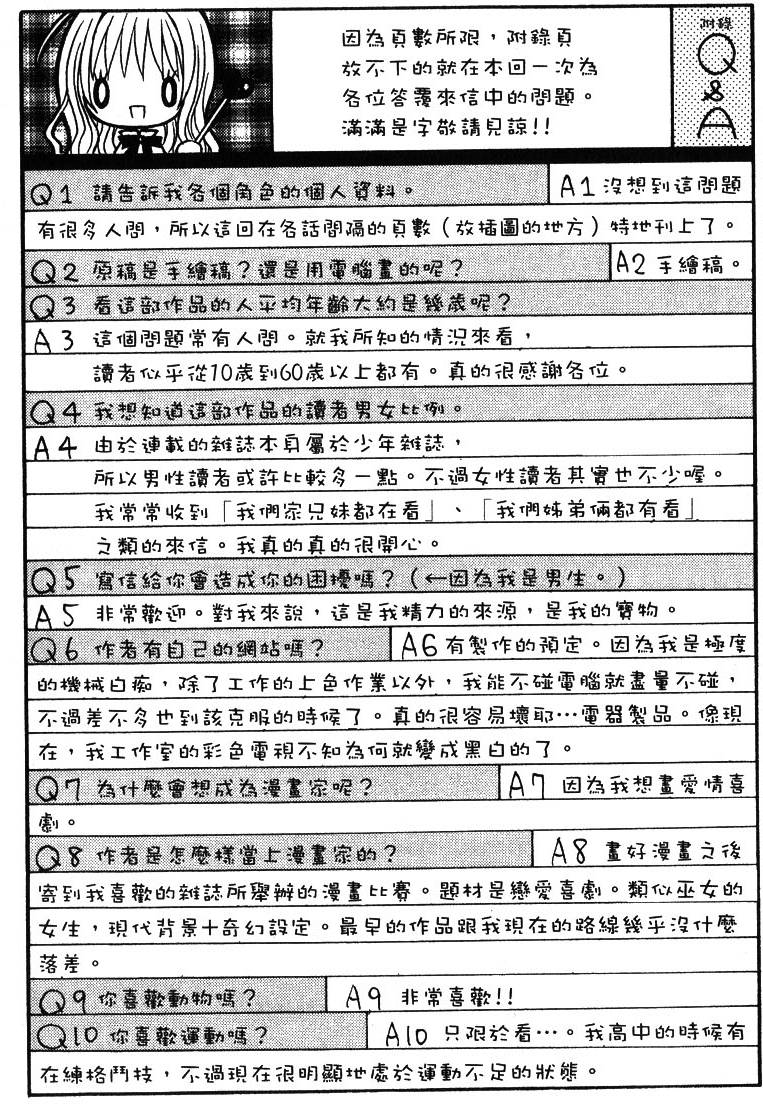 附錄
Q&A
因為頁數所限，附錄頁
放不下的就在本回一次為
各位答覆來信中的問題。
滿滿是字敬請見諒!!
Q1 請告訴我各個角色的個人資料。 A1 沒想到這問題
有很多人問，所以這回在各話間隔的頁數（放插圖的地方）特地刊上了。
Q2 原稿是手繪稿？還是用電腦畫的呢？ A2 手繪稿。
Q3 看這部作品的人平均年齡大約是幾歲呢？
A3 這個問題常有人問。就我所知的情況來看，
讀者似乎從10歲到60歲以上都有。真的很感謝各位。
Q4 我想知道這部作品的讀者男女比例。
A4 由於連載的雜誌本身屬於少年雜誌，
所以男性讀者或許比較多一點。不過女性讀者其實也不少喔。
我常常收到「我們家兄妹都在看」、「我們姊弟倆都有看」
之類的來信。我真的真的很開心。
Q5 寫信給你會造成你的困擾嗎？（←因為我是男生。）
A5 非常歡迎。對我來說，這是我精力的來源，是我的寶物。
Q6 作者有自己的網站嗎？ A6 有製作的預定。因為我是極度
的機械白痴，除了工作的上色作業以外，我能不碰電腦就盡量不碰，
不過差不多也到該克服的時候了。真的很容易壞耶…電器製品。像現
在，我工作室的彩色電視不知為何就變成黑白的了。
Q7 為什麼會想成為漫畫家呢？ A7 因為我想畫愛情喜
劇。
Q8 作者是怎麼樣當上漫畫家的？ A8 畫好漫畫之後
寄到我喜歡的雜誌所舉辦的漫畫比賽。題材是戀愛喜劇。類似巫女的
女生，現代背景＋奇幻設定。最早的作品跟我現在的路線幾乎沒什麼
落差。
Q9 你喜歡動物嗎？ A9 非常喜歡!!
Q10 你喜歡運動嗎？ A10 只限於看…。我高中的時候有
在練格鬥技，不過現在很明顯地處於運動不足的狀態。